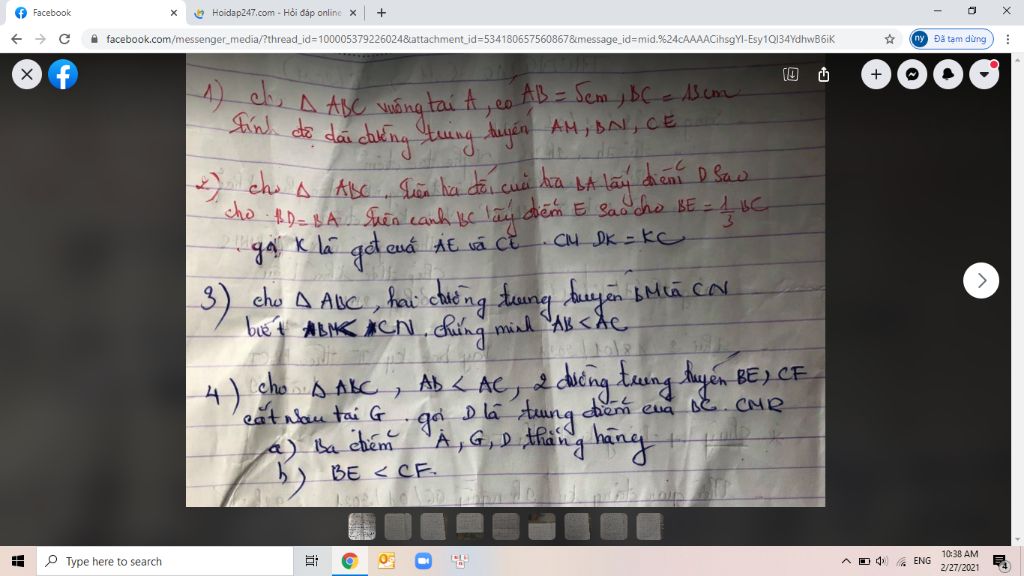 Facebook
Hoidap247.com - Hỏi đáp online
facebook.com/messenger_media/?thread_id=100005379226024&attachment_id=534180657560867&message_id=mid.%24cAAAACihsgYI-Esy1QI34YdhwB6iK
ny Đã tạm dừng
1) cho Δ ABC vuông tại A, có AB = 5cm, BC = 13cm
tính độ dài đường trung tuyến AM, BN, CE
2) cho Δ ABC. trên tia đối của tia BA lấy điểm D sao
cho BD = BA. trên cạnh BC lấy điểm E sao cho BE = 1/3 BC
gọi K là gđ cuả AE và CE. CM DK = KC
3) cho Δ ABC, hai đường trung tuyến BM và CN
biết BM < CN. chứng minh AB < AC
4) cho Δ ABC, AB < AC, 2 đường trung tuyến BE, CF
cắt nhau tại G. gọi D là trung điểm của BC. CMR
a) Ba điểm A, G, D thẳng hàng
b) BE < CF.
Type here to search
ENG
10:38 AM
2/27/2021
4